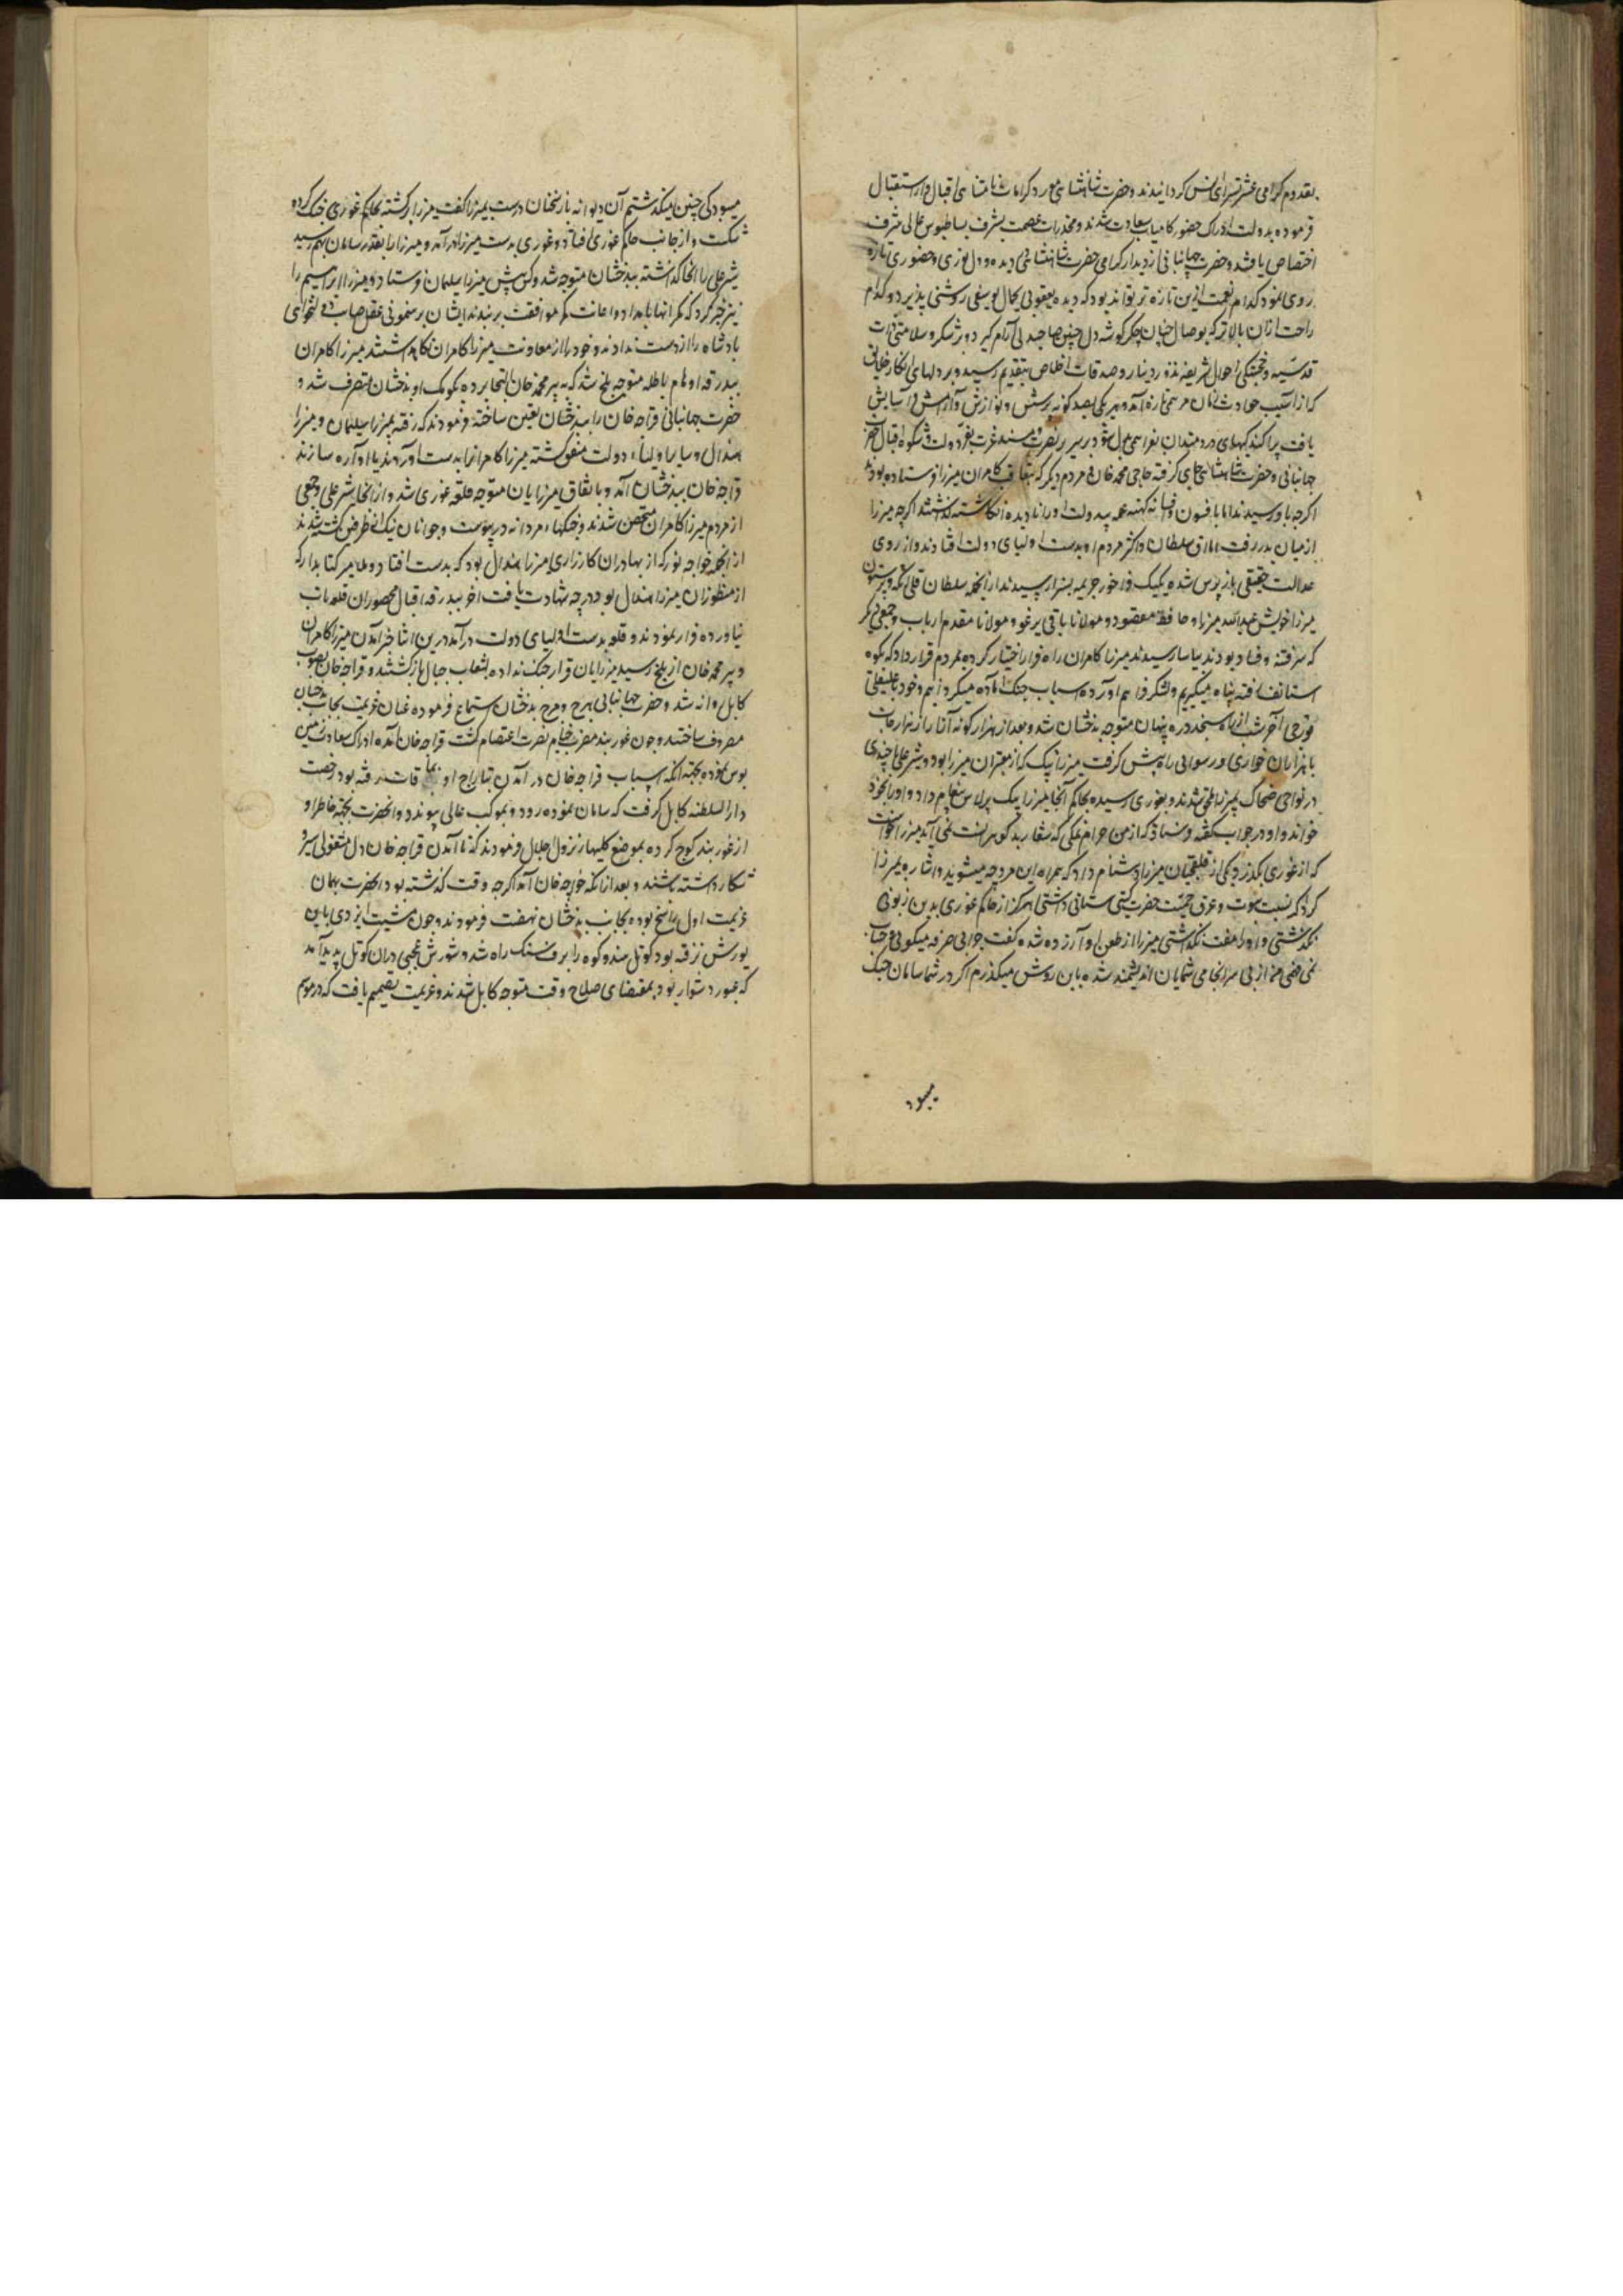 بقدوم گرامی عشرتسرای انس گردانیدند و حضرت شاهنشاهی مورد کرامات نامتناهی اقبال وار استقبال
فرموده بدولت ادراک حضور کامیاب سعادت شدند و مخدرات عصمت بشرف بساطبوس عالی شرف
اختصاص یافتند و حضرت جهانبانی از دیدار گرامی حضرت شاهنشاهی دیده و دل نوری و حضوری تازه
روی نمود کدام نعمت ازین تازه تر تواند بود که دیده یعقوبی بجمال یوسفی روشنی پذیرد و کدام
راحت ازان بالاتر که بوصال چنان جگر گوشه دل چنین صاحبدلی آرام گیرد و بر شکر سلامتی ذات
قدسیه و خجستگی احوال شریفه نذور دینار و صدقات اخلاص بتقدیم رسید و بر دلهای افکار خلایق
که از آسیب حوادث زمان مرهمی تازه آمد و هر یکی بصد گونه پرسش و نوازش و آرامش و آسایش
یافت پراکندگیهای دردمندان بفراهمی مبدل شد و بر سریر نصرت و مسند عزت بفر دولت و شکوه اقبال حضرت
جهانبانی و حضرت شاهنشاهی جای گرفته حاجی محمد خان و مردم دیگر که بتعاقب کامران میرزا فرستاده بودند
اگرچه باو رسیدند اما بافسون و فسانه کهنه عمله بیدولت او را نادیده انگاشته گذاشتند اگرچه میرزا
از میان بدر رفت اما آق سلطان و اکثر مردم او بدست اولیای دولت افتادند و از روی
عدالت حقیقی بازپرس شده یکیک فراخور جریمه بسزا رسیدند از انجمله سلطان قلی اتکه و تیرستون
میرزا خویش عبدالله میرزا و حافظ مقصود و مولانا باقی یرغو و مولانا مقدم ارباب و جمعی دیگر
که سر فتنه و فساد بودند بیاسا رسیدند میرزا کامران راه فرار اختیار کرده بمردم قرار داد که بکوه
استالف رفته پناه میگیریم و لشکر فراهم آورده اسباب جنگ آماده میگردانیم و خود با علیقلی
قورچی آخر شب از راه سنجد دره پنهان متوجه بدخشان شد و بعد از هزار گونه آزار از هزارجات
با هزاران خواری و رسوایی راه پیش گرفت میرزا بیک که از معتبران میرزا بود و شیر علی با چندی
در نواحی ضحاک بمیرزا ملحق شدند و بغوری رسیده بحاکم آنجا میرزا بیک برلاس پیغام داد و او را بخود
خواند و او در جواب گفته فرستاد که از من حرام نمکی که شعار بد گوهرانست نمی آید میرزا خواست
که از غوری بگذرد یکی از قلقچیان میرزا دشنام داد که همراه این مرد چه میشوید و اشاره بمیرزا
کرد که نسبت نبوت و عرق حمیت حضرت گیتی ستانی داشتی هرگز از حاکم غوری بدین زبونی
نگذشتی و او را مفت نگذاشتی میرزا از طعن او آزرده شده گفت جوابی حرفه میگویی و حساب
نمی فهمی من از بی سرانجامی شمایان اندیشمند شده باین روش میگذرم اگر در شما سامان جنگ
میبود
میبود کی چنین میگذشتیم آن دیوانه باز سخنان درست بمیرزا گفت میرزا برگشته بحاکم غوری جنگ کرده
شکست و از جانب حاکم غوری افتاد و غوری بدست میرزا درآمد و میرزا را بقدر سامان بهم رسید
شیر علی را آنجا گذاشته ببدخشان متوجه شد و کس پیش میرزا سلیمان فرستاد و میرزا ابراهیم را
نیز خبر کرد که مگر آنها بامداد و اعانت کمر موافقت بر بندند ایشان برهنمونی عقل صایب هواخواهی
پادشاه را از دست ندادند و خود را از معاونت میرزا کامران نگاهداشتند میرزا کامران
ببدرقه اوهام باطله متوجه بلخ شد که به پیر محمد خان التجا برده بکومک او بدخشان متصرف شد و
حضرت جهانبانی قراجه خان را ببدخشان تعین ساخته فرمودند که رفته بمیرزا سلیمان و میرزا
هندال و سایر اولیاء دولت متفق گشته میرزا کامران را بدست آورند یا آواره سازند
قراجه خان ببدخشان آمد و باتفاق میرزایان متوجه قلعه غوری شد و از آنجا شیر علی و جمعی
از مردم میرزا کامران متحصن شدند و جنگهاء مردانه در پیوست و جوانان نیک از طرفین کشته شدند
از انجمله خواجه نور که از بهادران کارزاری میرزا هندال بود که بدست افتاد و ملا میر کتابدار که
از منظوران میرزا هندال بود درجه شهادت یافت آخر ببدرقه اقبال محصوران قلعه تاب
نیاورده فرار نمودند و قلعه بدست اولیای دولت درآمد درین اثنا خبر آمدن میرزا کامران
و پیر محمد خان از بلخ رسید میرزایان قرار جنگ نداده بشعاب جبال باز گشتند و قراجه خان بصوب
کابل روانه شد و حضرت جهانبانی هرج و مرج بدخشان استماع فرموده عنان عزیمت بجانب بدخشان
مصروف ساختند و چون غوربند مضرب خیام نصرت اعتصام گشت قراجه خان آمده ادراک سعادت زمین
بوس نموده بجهة آنکه اسباب قراجه خان در آمدن بتاراج اویماقات رفته بود رخصت
دار السلطنه کابل گرفت که سامان نموده زود بموکب عالی پیوندد و آنحضرت بجهة خاطر او
از غوربند کوچ کرده بموضع گلبهار نزول جلال فرمودند که تا آمدن قراجه خان دل مشغولی سیر و
شکار داشته باشند و بعد از آنکه قراجه خان آمد اگرچه وقت گذشته بود آنحضرت بهمان
عزیمت اول راسخ بوده بجانب بدخشان نهضت فرمودند و چون مشیت ایزدی باین
یورش نرفته بود کوتل هندو کوه را برف سنگ راه شد و شورش عجبی در آن کوتل پدید آمد
که عبور دشوار بود بمقتضای صلاح وقت متوجه کابل شدند و عزیمت تصمیم یافت که در موسم